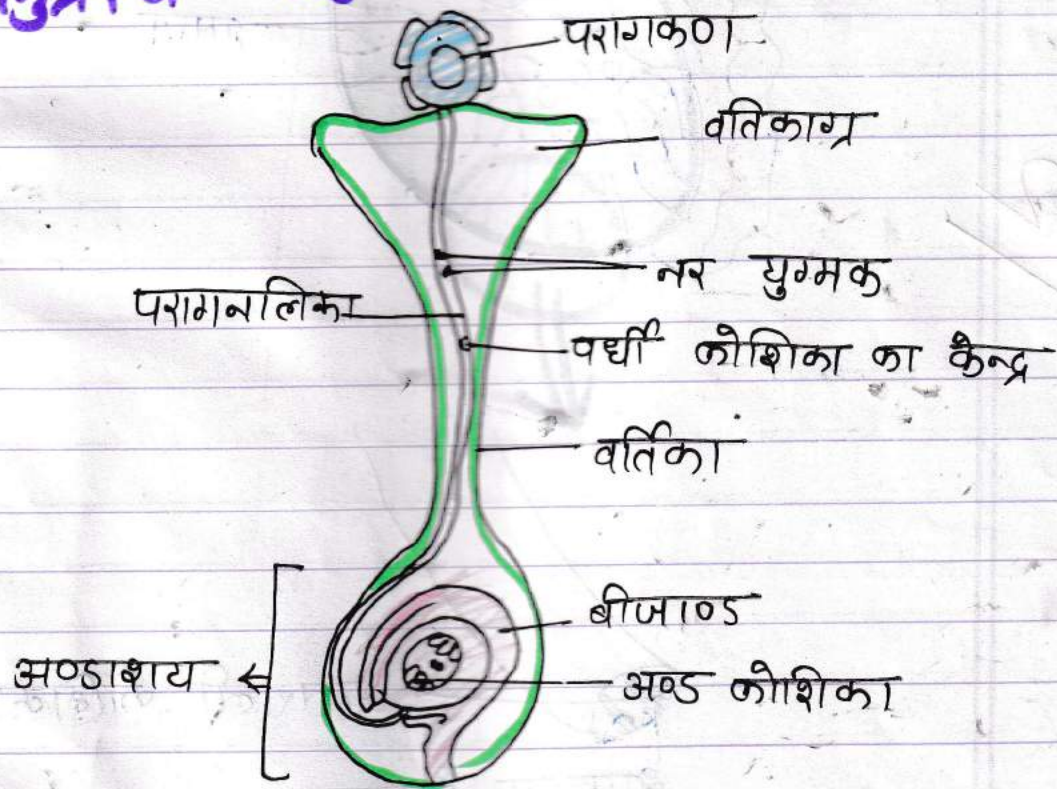 परागकण
वतिकाग्र
नर युग्मक
परागनलिका
वर्धी कोशिका का केन्द्र
वर्तिका
बीजाण्ड
अण्डाशय
अण्ड कोशिका